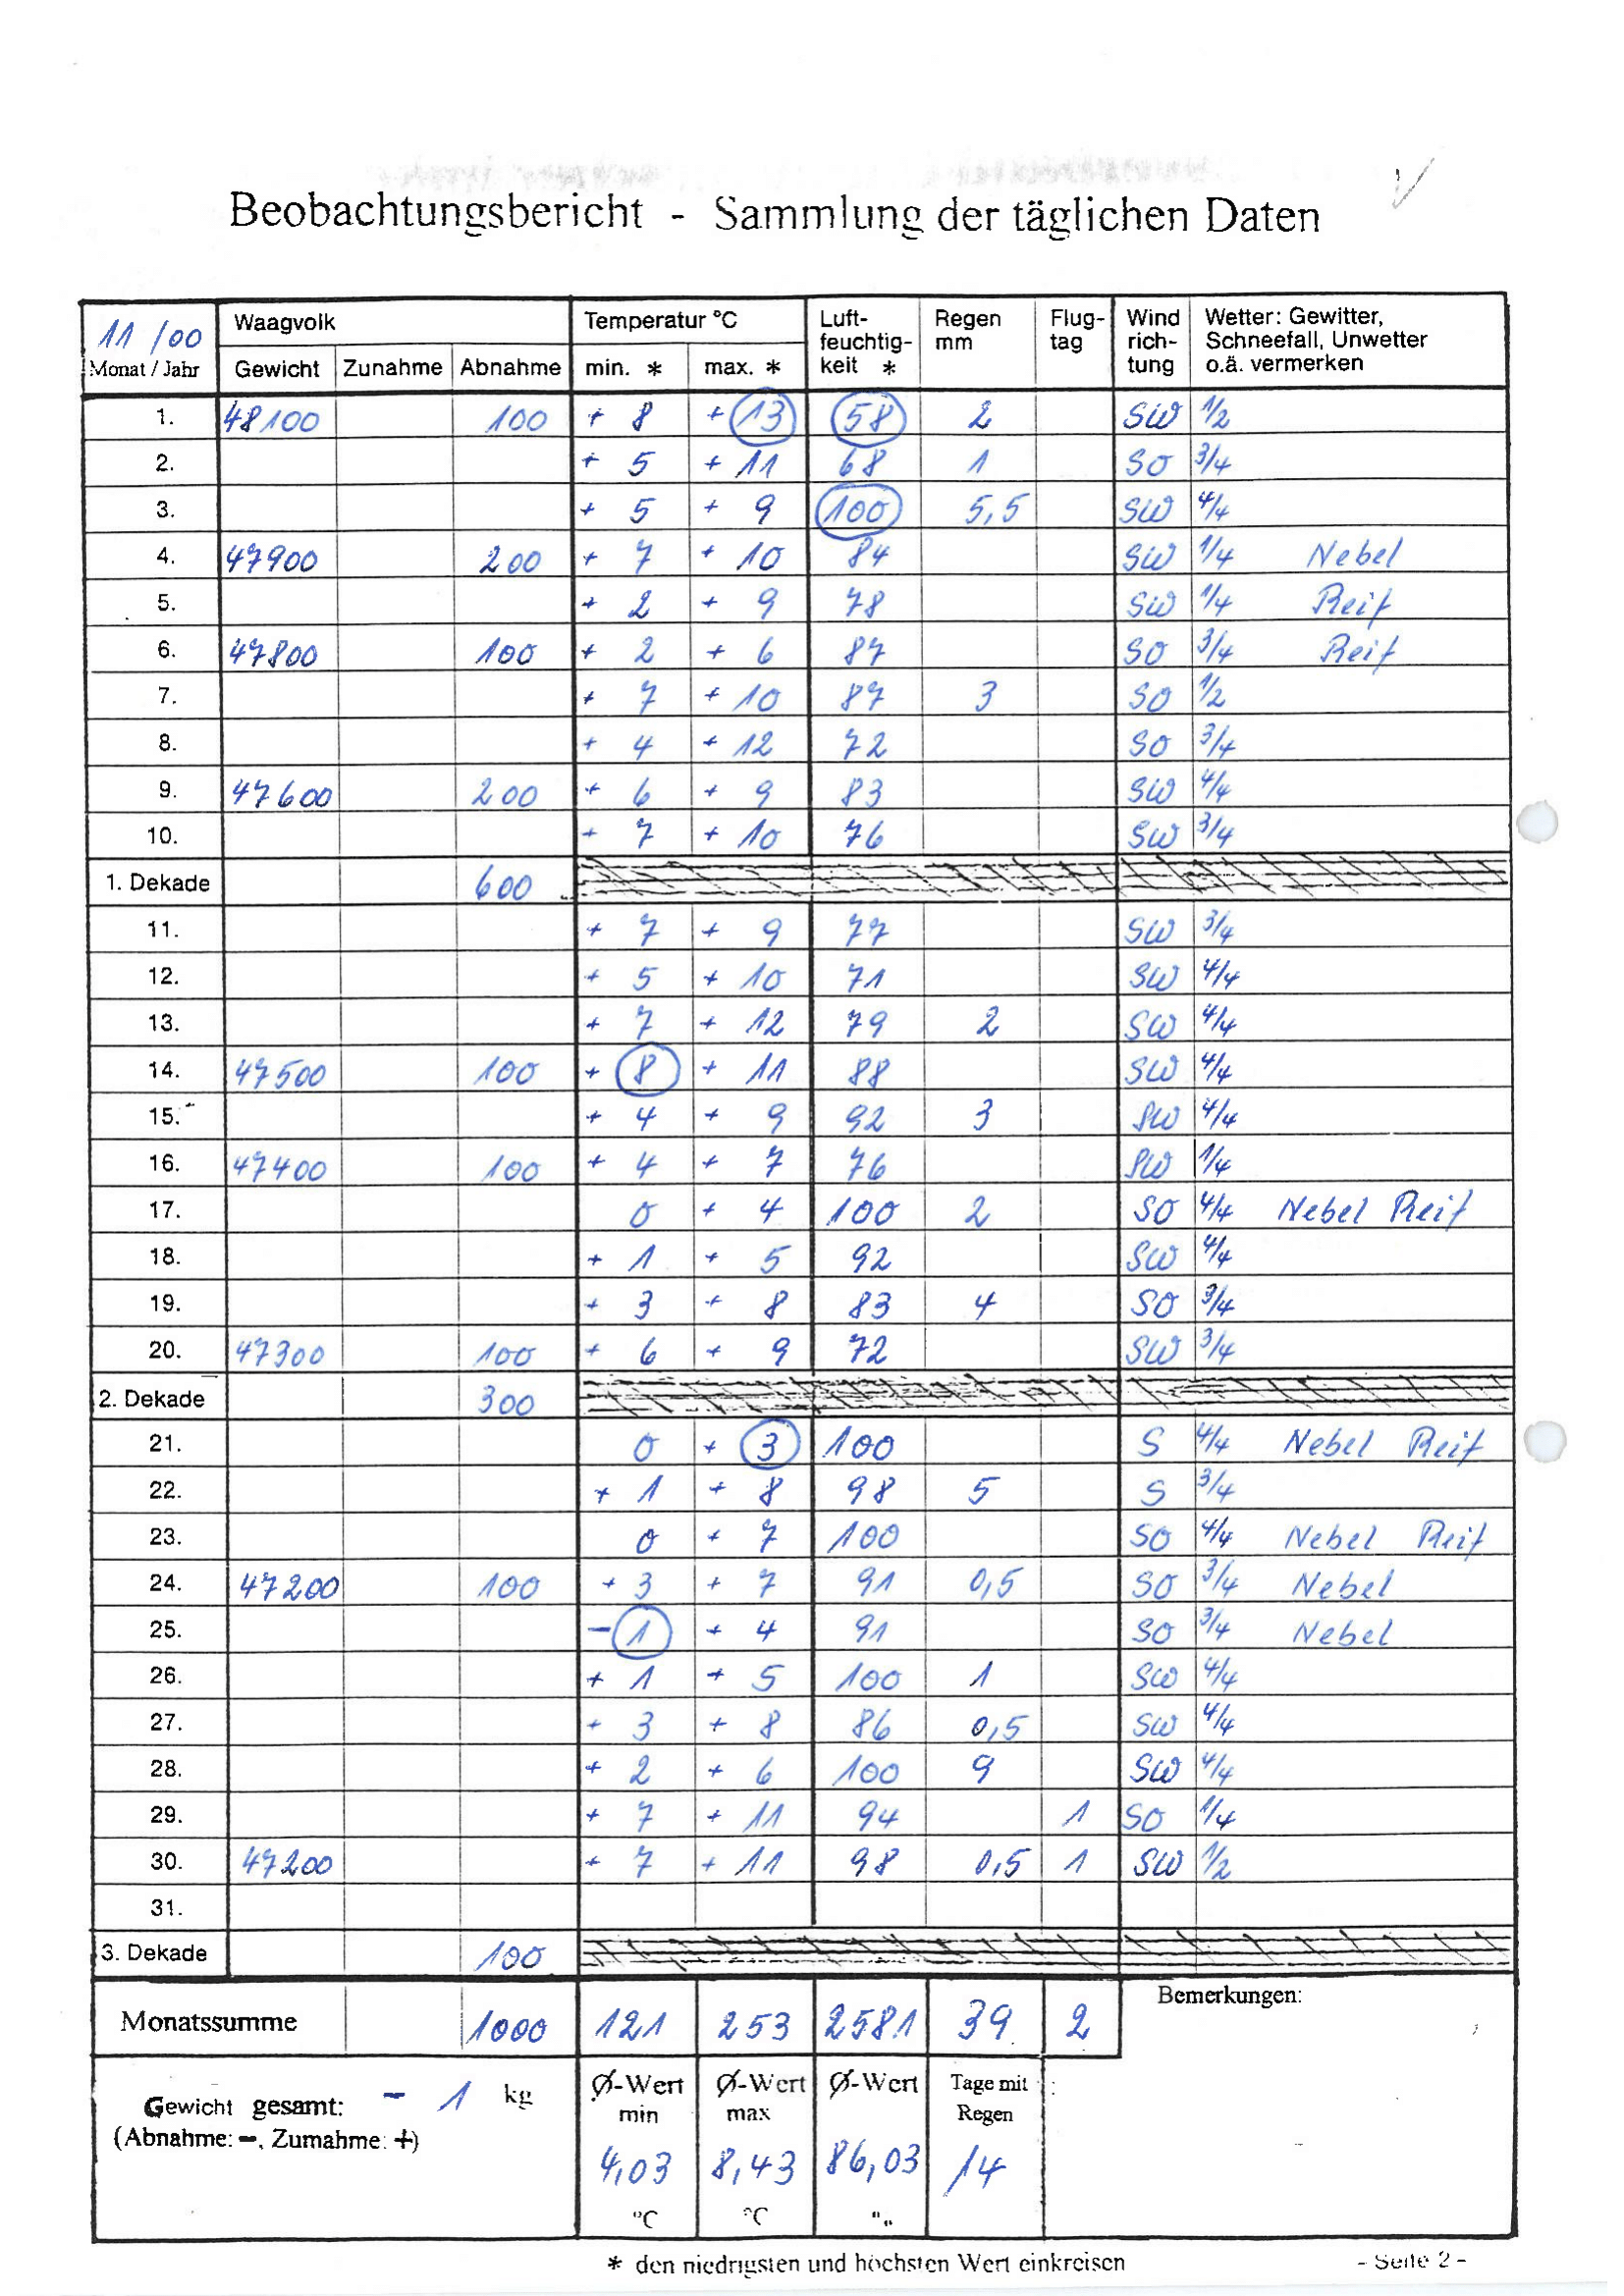 Beobachtungsbericht - Sammlung der täglichen Daten
11/00 Waagvolk Temperatur °C Luft- Regen Flug- Wind Wetter: Gewitter,
feuchtig- mm tag rich- Schneefall, Unwetter
Monat / Jahr Gewicht Zunahme Abnahme min. * max. * keit * tung o.ä. vermerken
1. 48100 100 + 8 + 13 58 2 SW 1/2
2. + 5 + 11 68 1 SO 3/4
3. + 5 + 9 100 5,5 SW 4/4
4. 47900 200 + 7 + 10 84 SW 1/4 Nebel
5. + 2 + 9 78 SW 1/4 Reif
6. 47800 100 + 2 + 6 87 SO 3/4 Reif
7. + 7 + 10 87 3 SO 1/2
8. + 4 + 12 72 SO 3/4
9. 47600 200 + 6 + 9 83 SW 4/4
10. + 7 + 10 76 SW 3/4
1. Dekade 600
11. + 7 + 9 77 SW 3/4
12. + 5 + 10 71 SW 4/4
13. + 7 + 12 79 2 SW 4/4
14. 47500 100 + 8 + 11 88 SW 4/4
15. + 4 + 9 92 3 SW 4/4
16. 47400 100 + 4 + 7 76 SW 1/4
17. 0 + 4 100 2 SO 4/4 Nebel Reif
18. + 1 + 5 92 SW 4/4
19. + 3 + 8 83 4 SO 3/4
20. 47300 100 + 6 + 9 72 SW 3/4
2. Dekade 300
21. 0 + 3 100 S 4/4 Nebel Reif
22. + 1 + 8 98 5 S 3/4
23. 0 + 7 100 SO 4/4 Nebel Reif
24. 47200 100 + 3 + 7 91 0,5 SO 3/4 Nebel
25. - 1 + 4 91 SO 3/4 Nebel
26. + 1 + 5 100 1 SW 4/4
27. + 3 + 8 86 0,5 SW 4/4
28. + 2 + 6 100 9 SW 4/4
29. + 7 + 11 94 1 SO 1/4
30. 47200 + 7 + 11 98 0,5 1 SW 1/2
31.
3. Dekade 100
Monatssumme 1000 121 253 2581 39 2 Bemerkungen:
Gewicht gesamt: - 1 kg Ø-Wert Ø-Wert Ø-Wert Tage mit
(Abnahme: -, Zumahme: +) min max Regen
4,03 8,43 86,03 14
°C °C
* den niedrigsten und höchsten Wert einkreisen - Seite 2 -